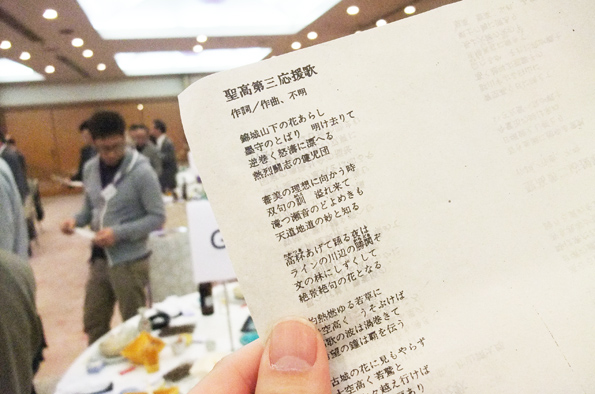 聖高第三応援歌
作詞／作曲、不明
錦城山下の花あらし
墨守のとばり 明け去りて
逆巻く怒涛に漂へる
熱烈闘志の健児団
審美の理想に向かう時
双句の韻 溢れ来て
滝つ瀬音のどよめきも
天道地道の妙と知る
高杯あげて踊る夜は
ラインの川辺の勝鬨ぞ
文の林にしずくして
絶景絶句の花となる
灼熱燃ゆる若草に
空高く うそぶけば
歌の波は渦巻きて
望の鐘は覇を伝う
古城の花に見もやらず
大空高く若鷲と
越え行けば
あり
G